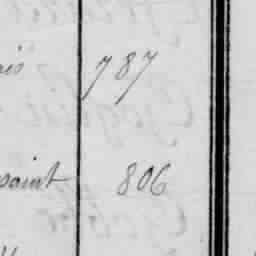 787
saint 806